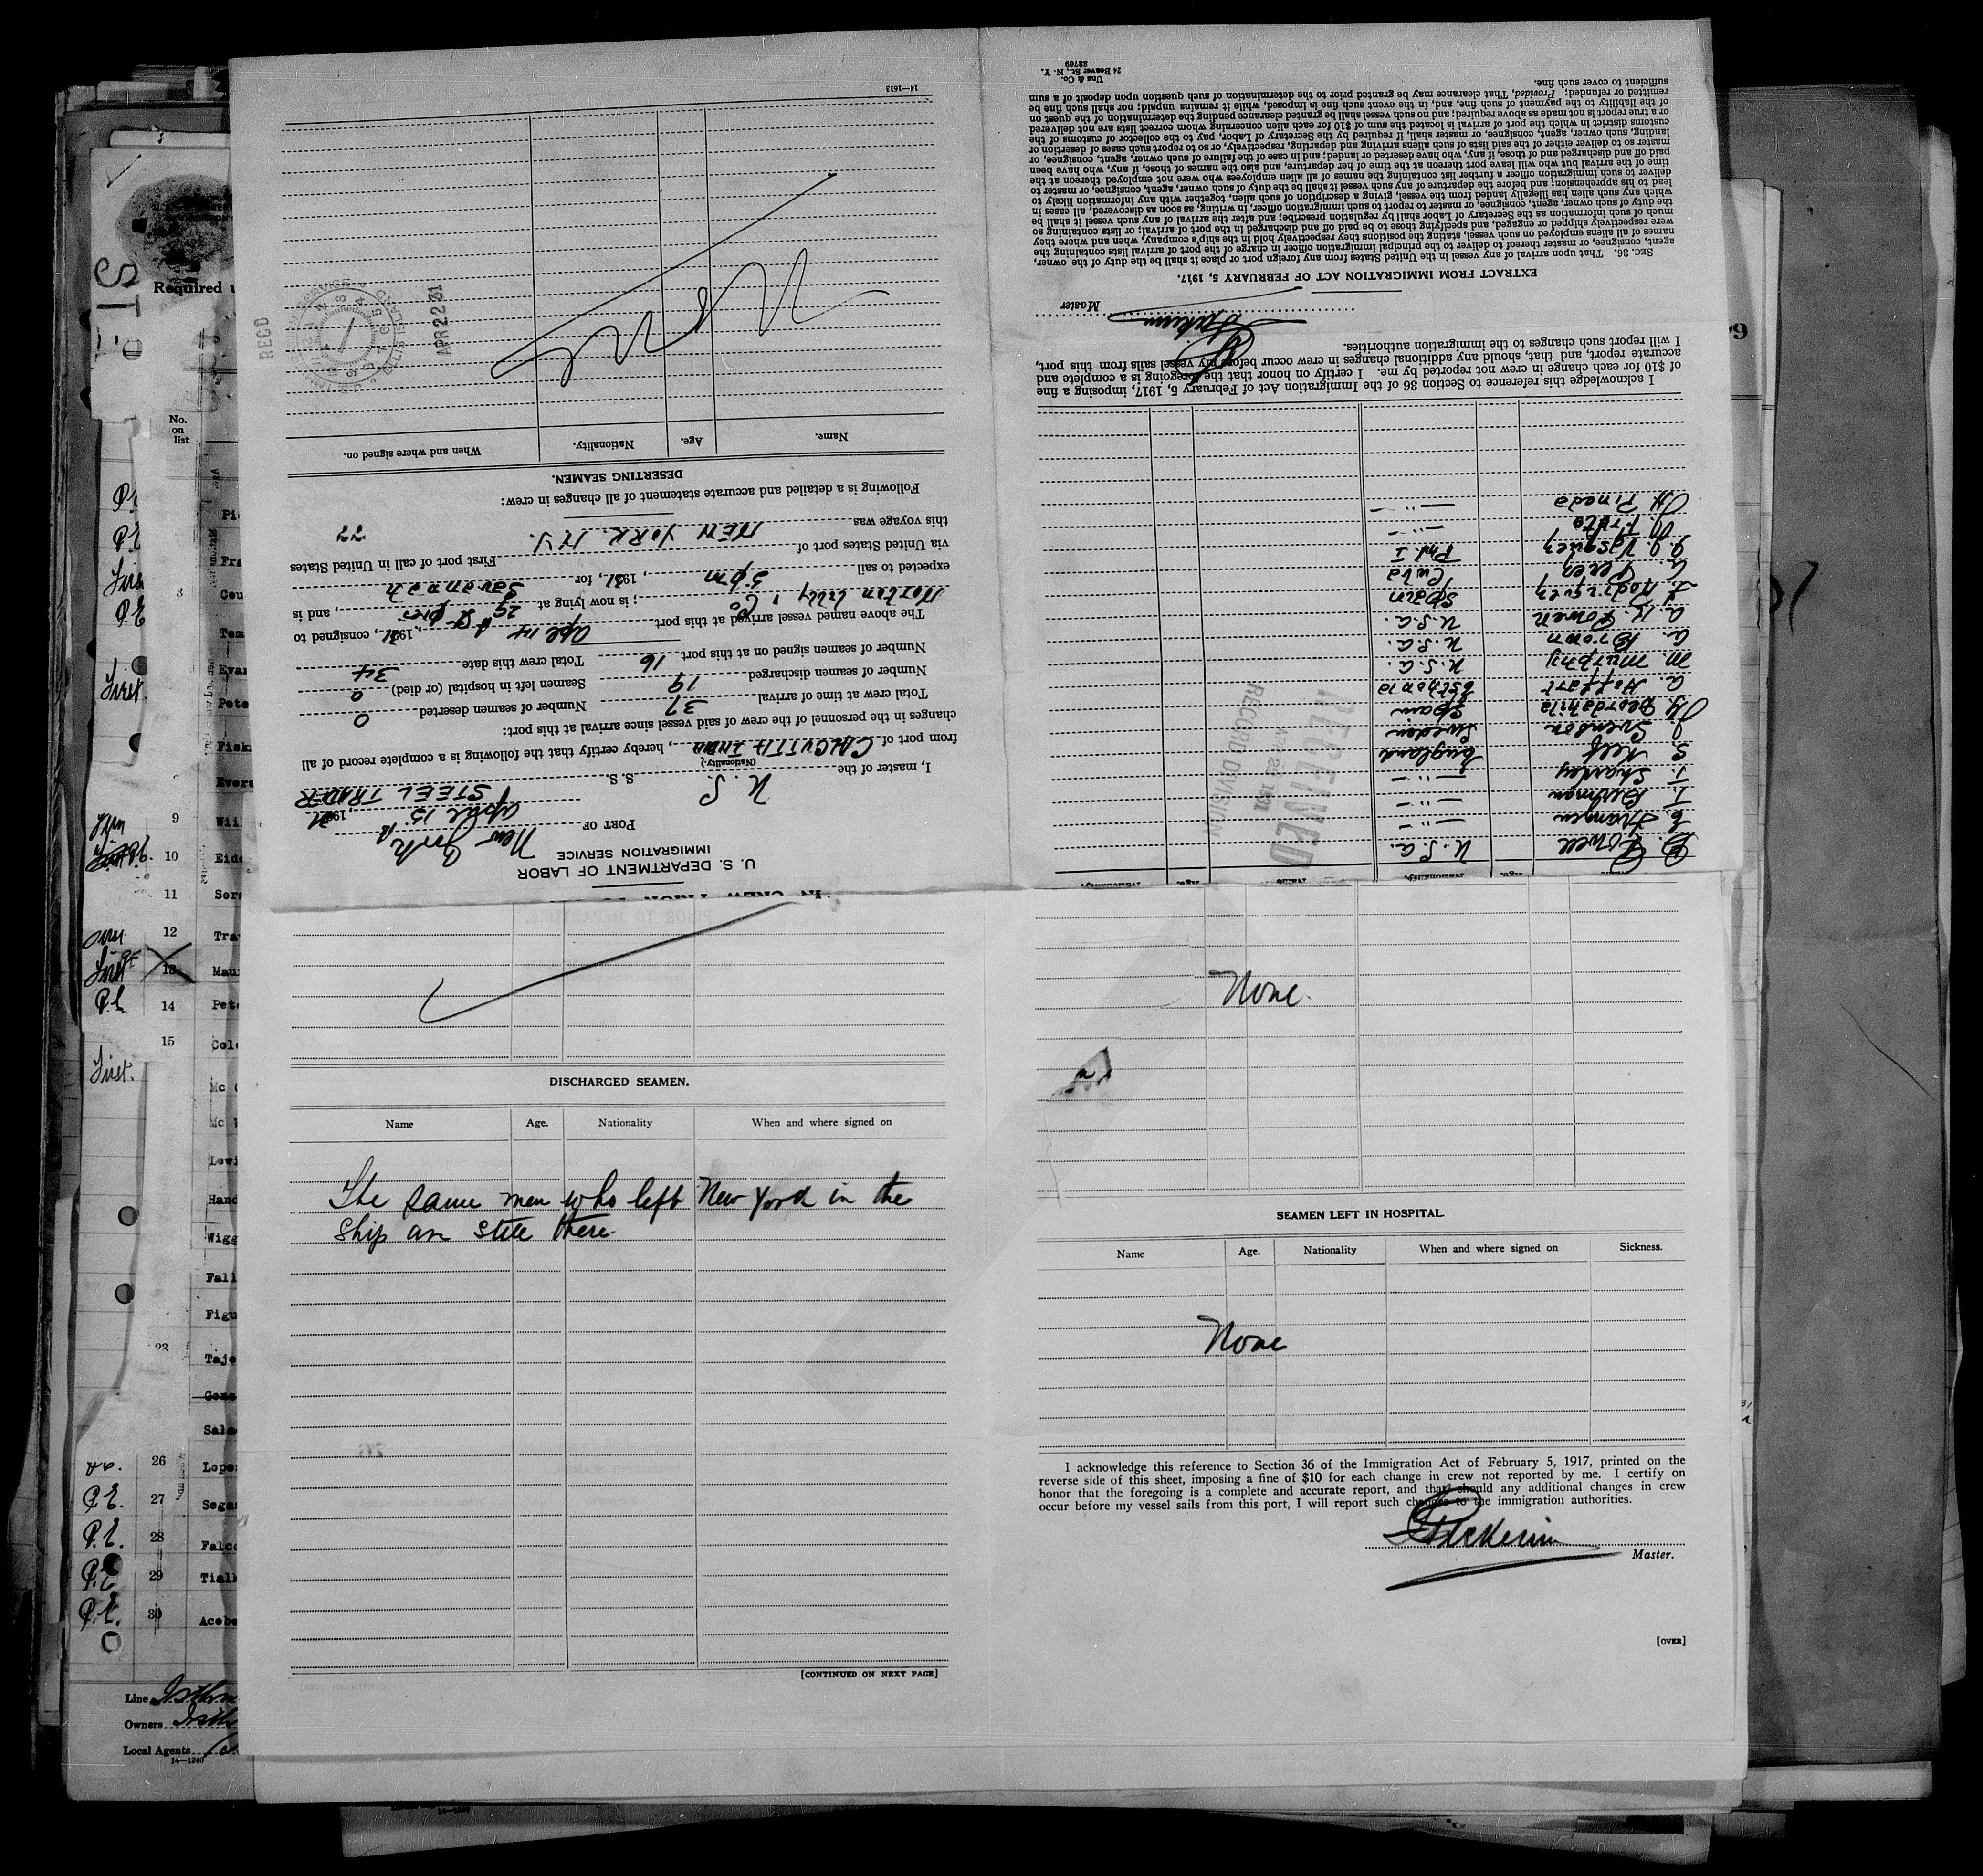 IMMIGRATION SERVICE
U. S. DEPARTMENT OF LABOR
PORT OF New York
April 15, 1931
I, master of the U. S. S. S. STEEL TRADER
(Nationality.)
from port of CALCUTTA INDIA, hereby certify that the following is a complete record of all
changes in the personnel of the crew of said vessel since arrival at this port:
Total crew at time of arrival 37 Number of seamen deserted 0
Number of seamen discharged 19 Seamen left in hospital (or died) 0
Number of seamen signed on at this port 16 Total crew this date 34
The above named vessel arrived at this port April 14, 1931, consigned to
Norton Lilly Co; is now lying at 29 St pier, and is
expected to sail 5 pm, 1931, for Savannah
via United States port of First port of call in United States
this voyage was NEW YORK N.Y.
Following is a detailed and accurate statement of all changes in crew:
DESERTING SEAMEN.
Name. Age. Nationality. When and where signed on.
None
RECD
APR 22 31
ELLIS ISLAND
14—1613
B. Powell U.S.A.
E. Hansen — " —
T. Birkman — " —
T. Sharkey — " —
S. Kelf England
J. Svenson Sweden
Spain
A. Hoffart Esthonia
M. Murphy U.S.A.
A. Brown U.S.A.
A. K. Bowen U.S.A.
L. Rodriguez Spain
G. Perez Cuba
J. J. Vasquez Phil I
M. Frata — " —
H. Pinada — " —
RECEIVED
APR 22 1931
RECORD DIVISION
I acknowledge this reference to Section 36 of the Immigration Act of February 5, 1917, imposing a fine
of $10 for each change in crew not reported by me. I certify on honor that the foregoing is a complete and
accurate report, and that, should any additional changes in crew occur before my vessel sails from this port,
I will report such changes to the immigration authorities.
Master
EXTRACT FROM IMMIGRATION ACT OF FEBRUARY 5, 1917.
SEC. 36. That upon arrival of any vessel in the United States from any foreign port or place it shall be the duty of the owner,
agent, consignee, or master thereof to deliver to the principal immigration officer in charge of the port of arrival lists containing the
names of all aliens employed on such vessel, stating the positions they respectively hold in the ship's company, when and where they
were respectively shipped or engaged, and specifying those to be paid off and discharged in the port of arrival; or lists containing so
much of such information as the Secretary of Labor shall by regulation prescribe; and after the arrival of any such vessel it shall be
the duty of such owner, agent, consignee, or master to report to such immigration officer, in writing, as soon as discovered, all cases in
which any such alien has illegally landed from the vessel, giving a description of such alien, together with any information likely to
lead to his apprehension; and before the departure of any such vessel it shall be the duty of such owner, agent, consignee, or master to
deliver to such immigration officer a further list containing the names of all alien employees who were not employed thereon at the
time of the arrival but who will leave port thereon at the time of her departure, and also the names of those, if any, who have been
paid off and discharged and of those, if any, who have deserted or landed; and in case of the failure of such owner, agent, consignee, or
master so to deliver either of the said lists of such aliens arriving and departing, respectively, or so to report such cases of desertion or
landing, such owner, agent, consignee, or master shall, if required by the Secretary of Labor, pay to the collector of customs of the
customs district in which the port of arrival is located the sum of $10 for each alien concerning whom correct lists are not delivered
or a true report is not made as above required; and no such vessel shall be granted clearance pending the determination of the question
of the liability to the payment of such fine, and, in the event such fine is imposed, while it remains unpaid; nor shall such fine be
remitted or refunded: Provided, That clearance may be granted prior to the determination of such question upon deposit of a sum
sufficient to cover such fine.
Unz & Co.
24 Beaver St., N. Y.
88769
DISCHARGED SEAMEN.
Name Age. Nationality When and where signed on
The same men who left New York in the
Ship are still there
[CONTINUED ON NEXT PAGE]
None.
SEAMEN LEFT IN HOSPITAL.
Name Age. Nationality When and where signed on Sickness.
None
I acknowledge this reference to Section 36 of the Immigration Act of February 5, 1917, printed on the
reverse side of this sheet, imposing a fine of $10 for each change in crew not reported by me. I certify on
honor that the foregoing is a complete and accurate report, and that should any additional changes in crew
occur before my vessel sails from this port, I will report such changes to the immigration authorities.
Master.
[OVER]
Required
No.
on
list
3
9
10
11
12
13
14
15
23
26
27
28
29
30
Line
Owners
Local Agents
14—1240